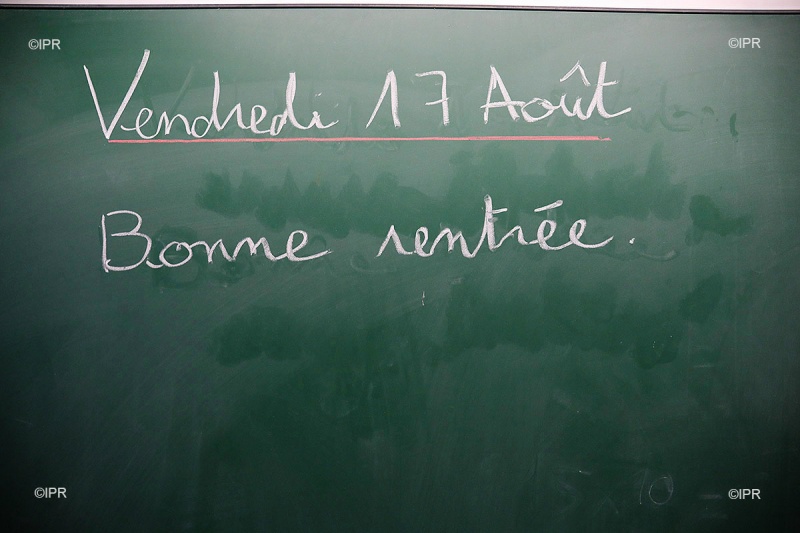 ©IPR ©IPR
Vendredi 17 Août
Bonne rentrée.
©IPR ©IPR